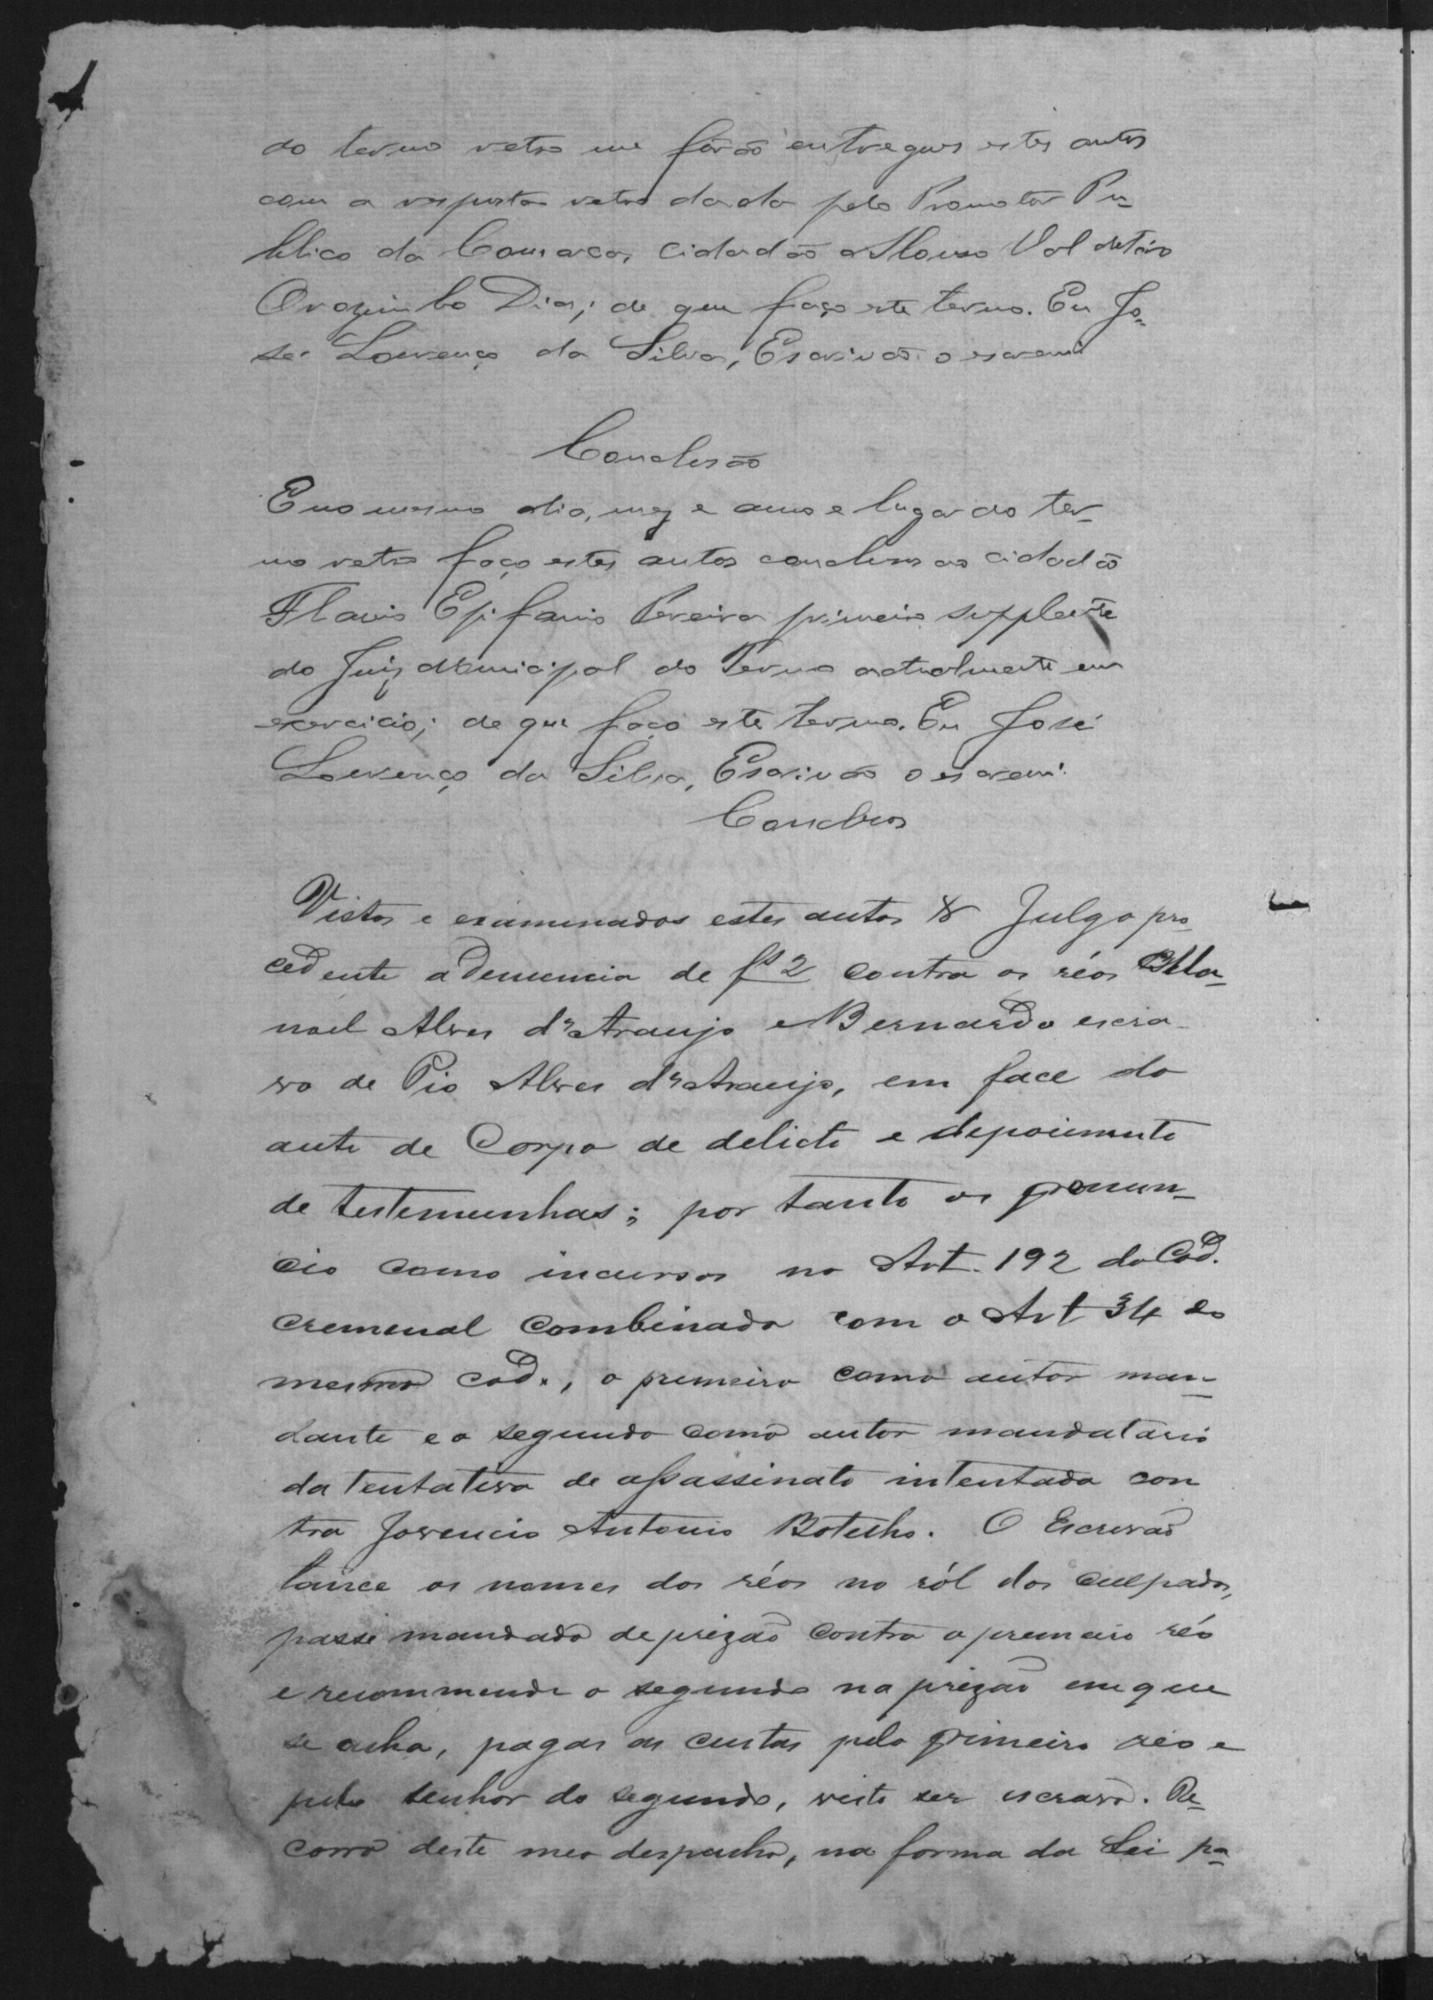 do termo retro me fôrão entregues estes autos
com a resposta retro dada pelo Promotor Pu-
blico da Comarca, cidadão Affonso Valdetáro
Orozimbo Dias; de que faço este termo. Eu Jo-
sé Lourenço da Silva, Escrivão o escrevi
Conclusão
E no mesmo dia, mez e anno e lugar do ter-
mo retro faço estes autos conclusos ao cidadão
Flavio Epifanio Pereira primeiro supplente
do Juiz Municipal do Termo actualmente em
exercicio; de que faço este termo. Eu José
Lourenço da Silva, Escrivão o escrevi.
Conclusos
Vistos e examinados estes autos & Julgo pro
cedente a Denuncia de fs 2 contra os réos Ma-
noel Alves de Araujo e Bernardo escra-
vo de Pio Alves de Araujo, em face do
auto de Corpo de delicto e depoimento
de testemunhas; por tanto os pronun-
cio como incursos no Art. 192 do Cod.
cremenal combinado com o Art 34 do
mesmo Cod., o premeiro como autor man-
dante e o segundo como autor mandatario
da tentativa de assassinato intentada con
tra Jovencio Antonio Botelho. O Escrevão
lance os nomes dos réos no ról dos culpados,
passe mandado de prizão contra o premeiro réo
e recommende o segundo na prizão em que
se acha, pagas as custas pelo primeiro réo e
pelo senhor do segundo, visto ser escravo. Re-
corro deste meo despacho, na forma da Lei pa-